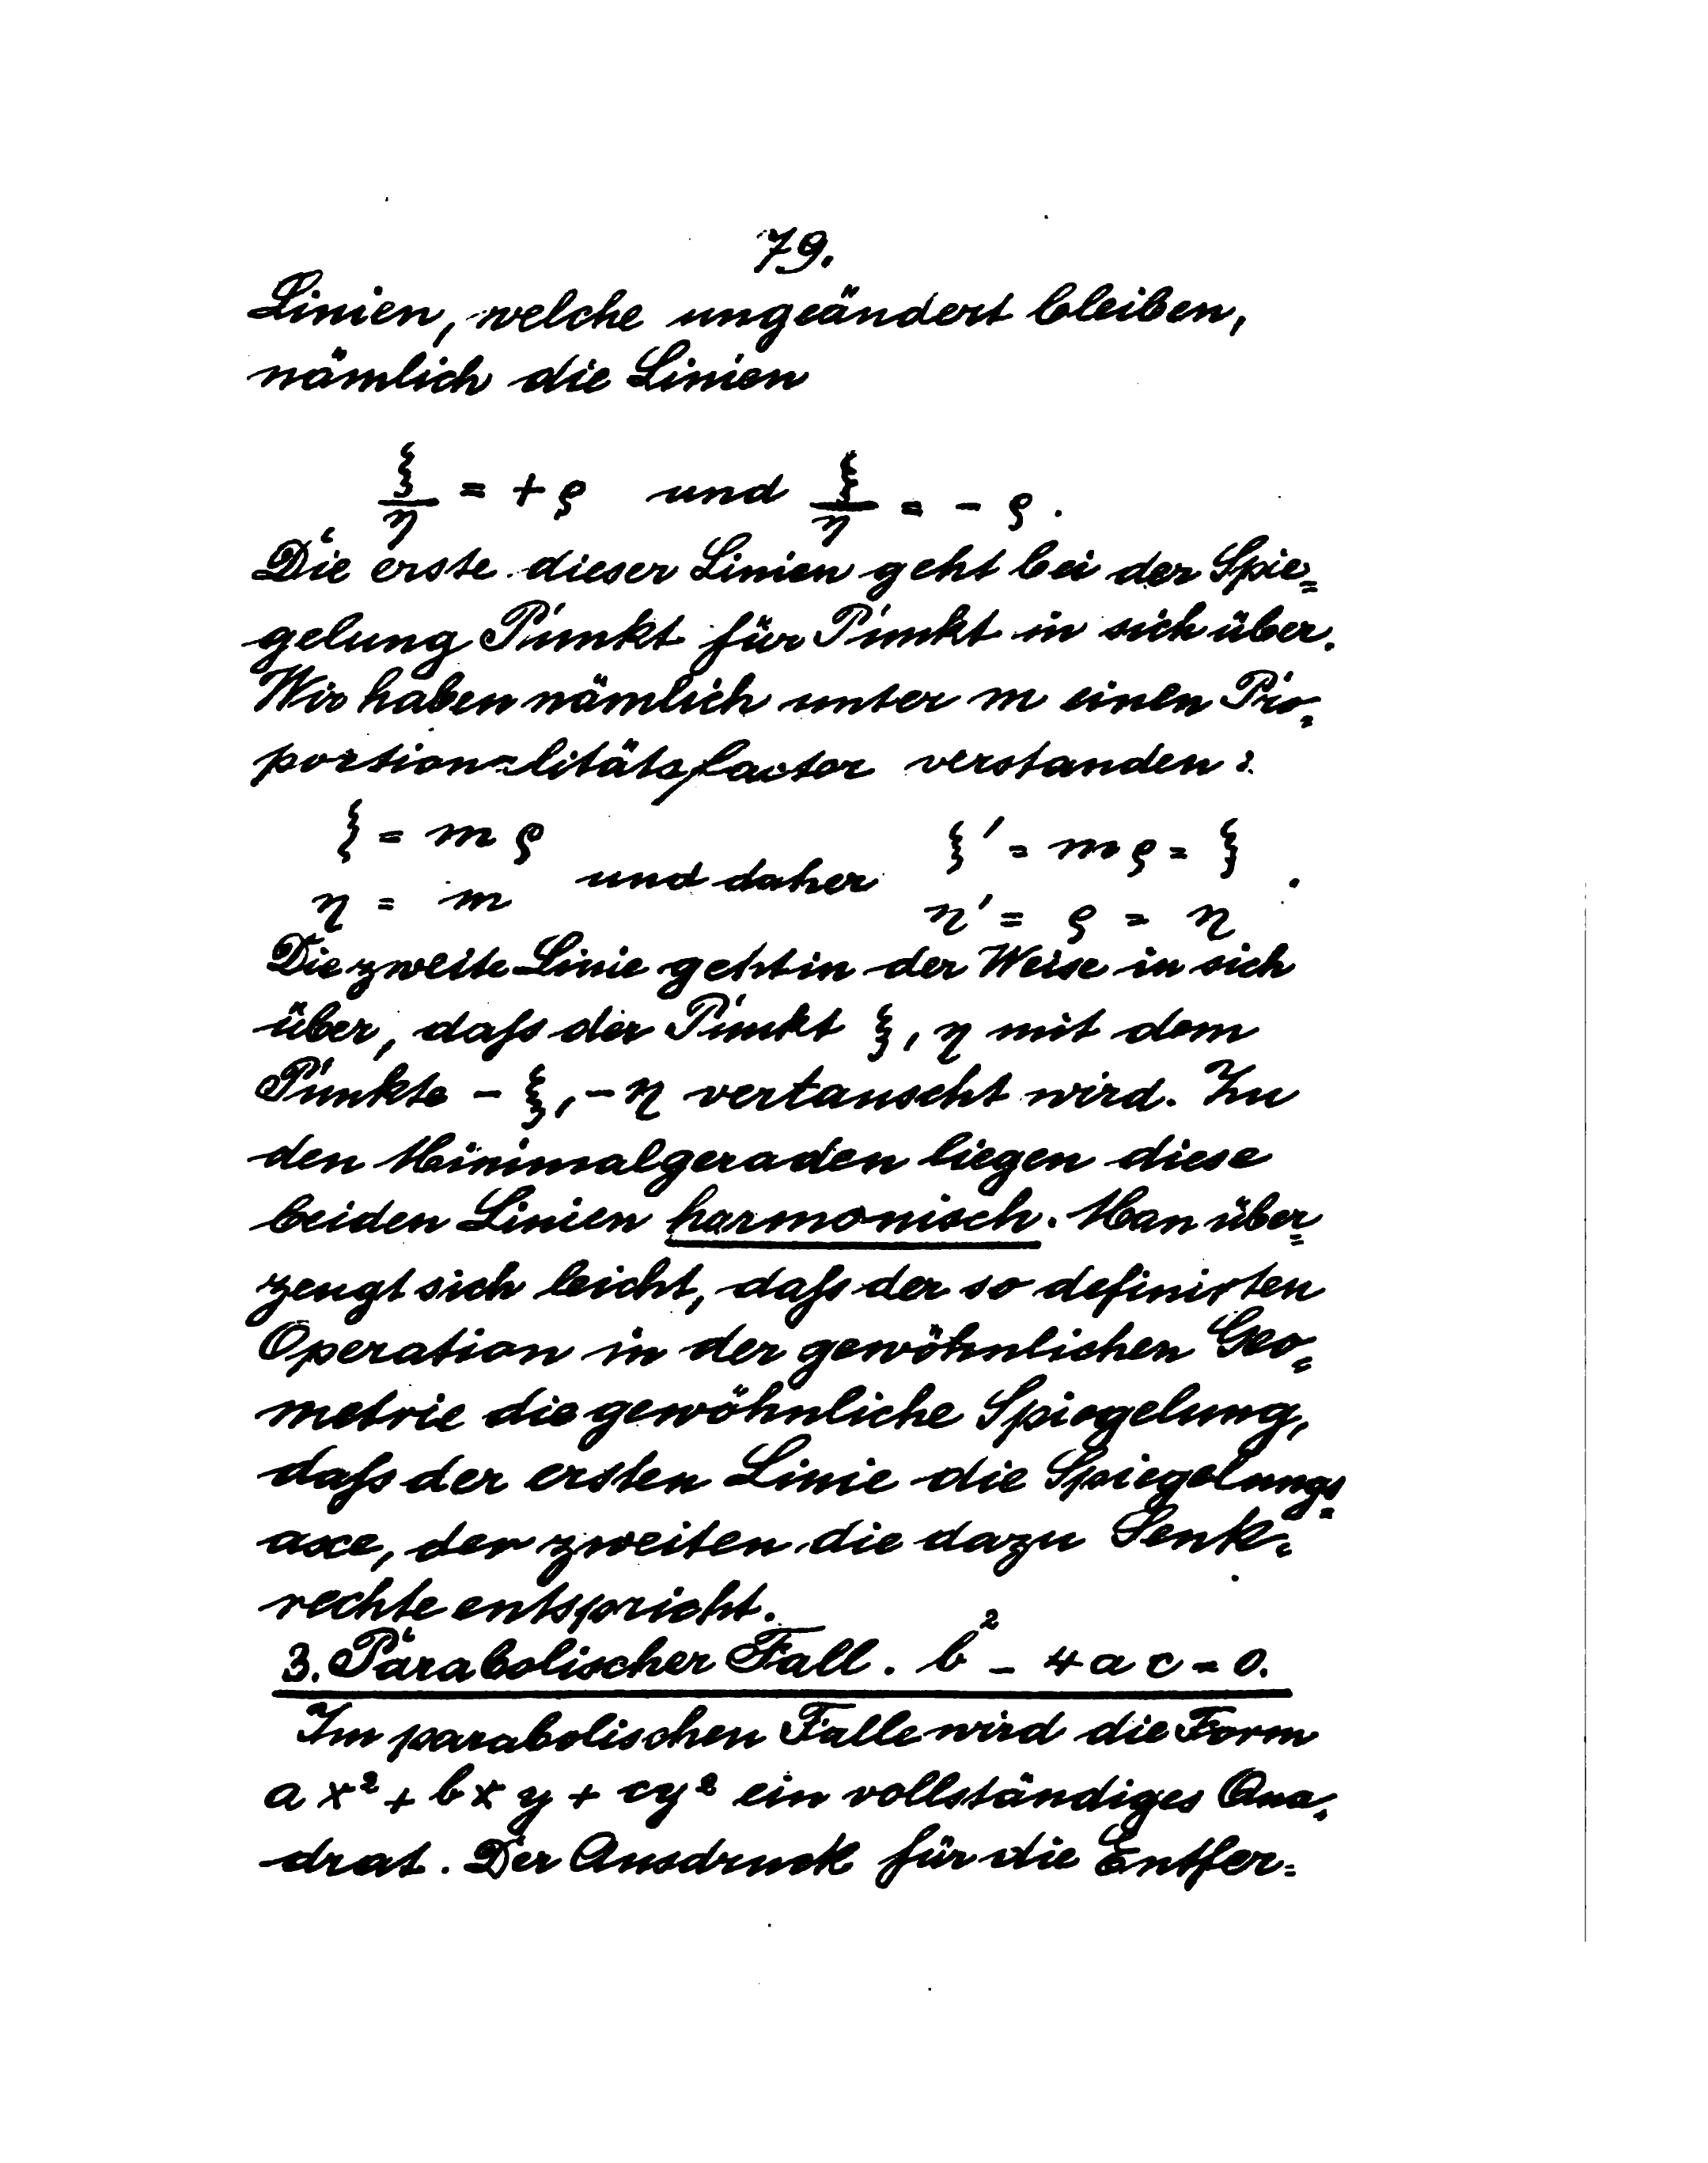 79.
Linien, welche ungeändert bleiben,
nämlich die Linien
ξ/η = + ρ und ξ/η = - ρ.
Die erste dieser Linien geht bei der Spie=
gelung Punkt für Punkt in sich über.
Wir haben nämlich unter m einen Pro=
portionalitätsfactor verstanden:
ξ = m ρ und daher ξ' = m ρ = ξ
η = m η' = ρ = η.
Die zweite Linie geht in der Weise in sich
über, daſs der Punkt ξ, η mit dem
Punkte - ξ, - η vertauscht wird. Zu
den Minimalgeraden liegen diese
beiden Linien harmonisch. Man über=
zeugt sich leicht, daſs der so definirten
Operation in der gewöhnlichen Geo=
metrie die gewöhnliche Spiegelung,
daſs der ersten Linie die Spiegelungs=
axe, der zweiten die dazu Senk=
rechte entspricht.
3. Parabolischer Fall. b² - 4 a c = 0.
Im parabolischen Falle wird die Form
a x² + b x y + c y² ein vollständiges Qua=
drat. Der Ausdruck für die Entfer=